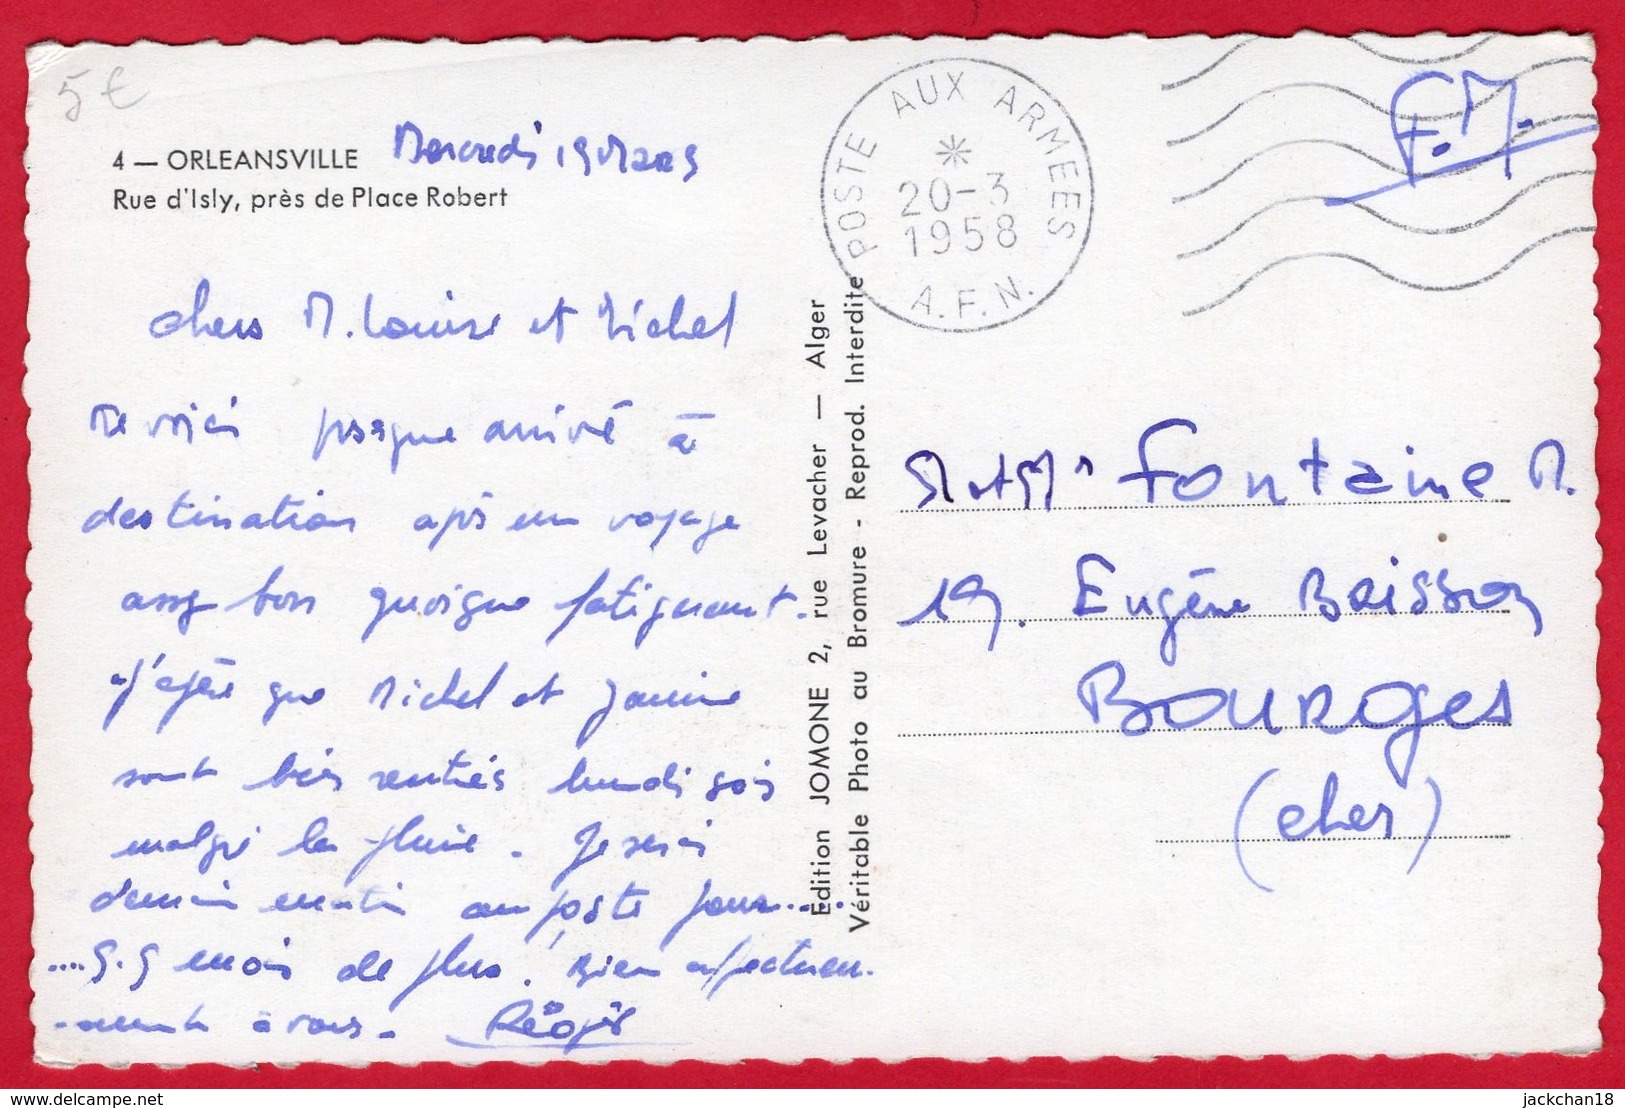 5€
4 — ORLEANSVILLE
Mercredi 19 Mars
Rue d'Isly, près de Place Robert
POSTE AUX ARMEES
20-3
1958
A.F.N.
F.M.
chers M. Louise et Michel
Me voici presque arrivé à
destination après un voyage
assez bon quoique fatiguant.
J'espère que Michel et Janine
sont bien rentrés lundi soir
malgré la pluie. Je serai
demain matin au poste pour....
....5.5 mois de plus. Bien affectueu-
-sement à vous. Régis
Edition JOMONE 2, rue Levacher — Alger
Véritable Photo au Bromure - Reprod. Interdite
M et Mme Fontaine M.
19. Eugène Brisson
Bourges
(cher)
www.delcampe.net
jackchan18